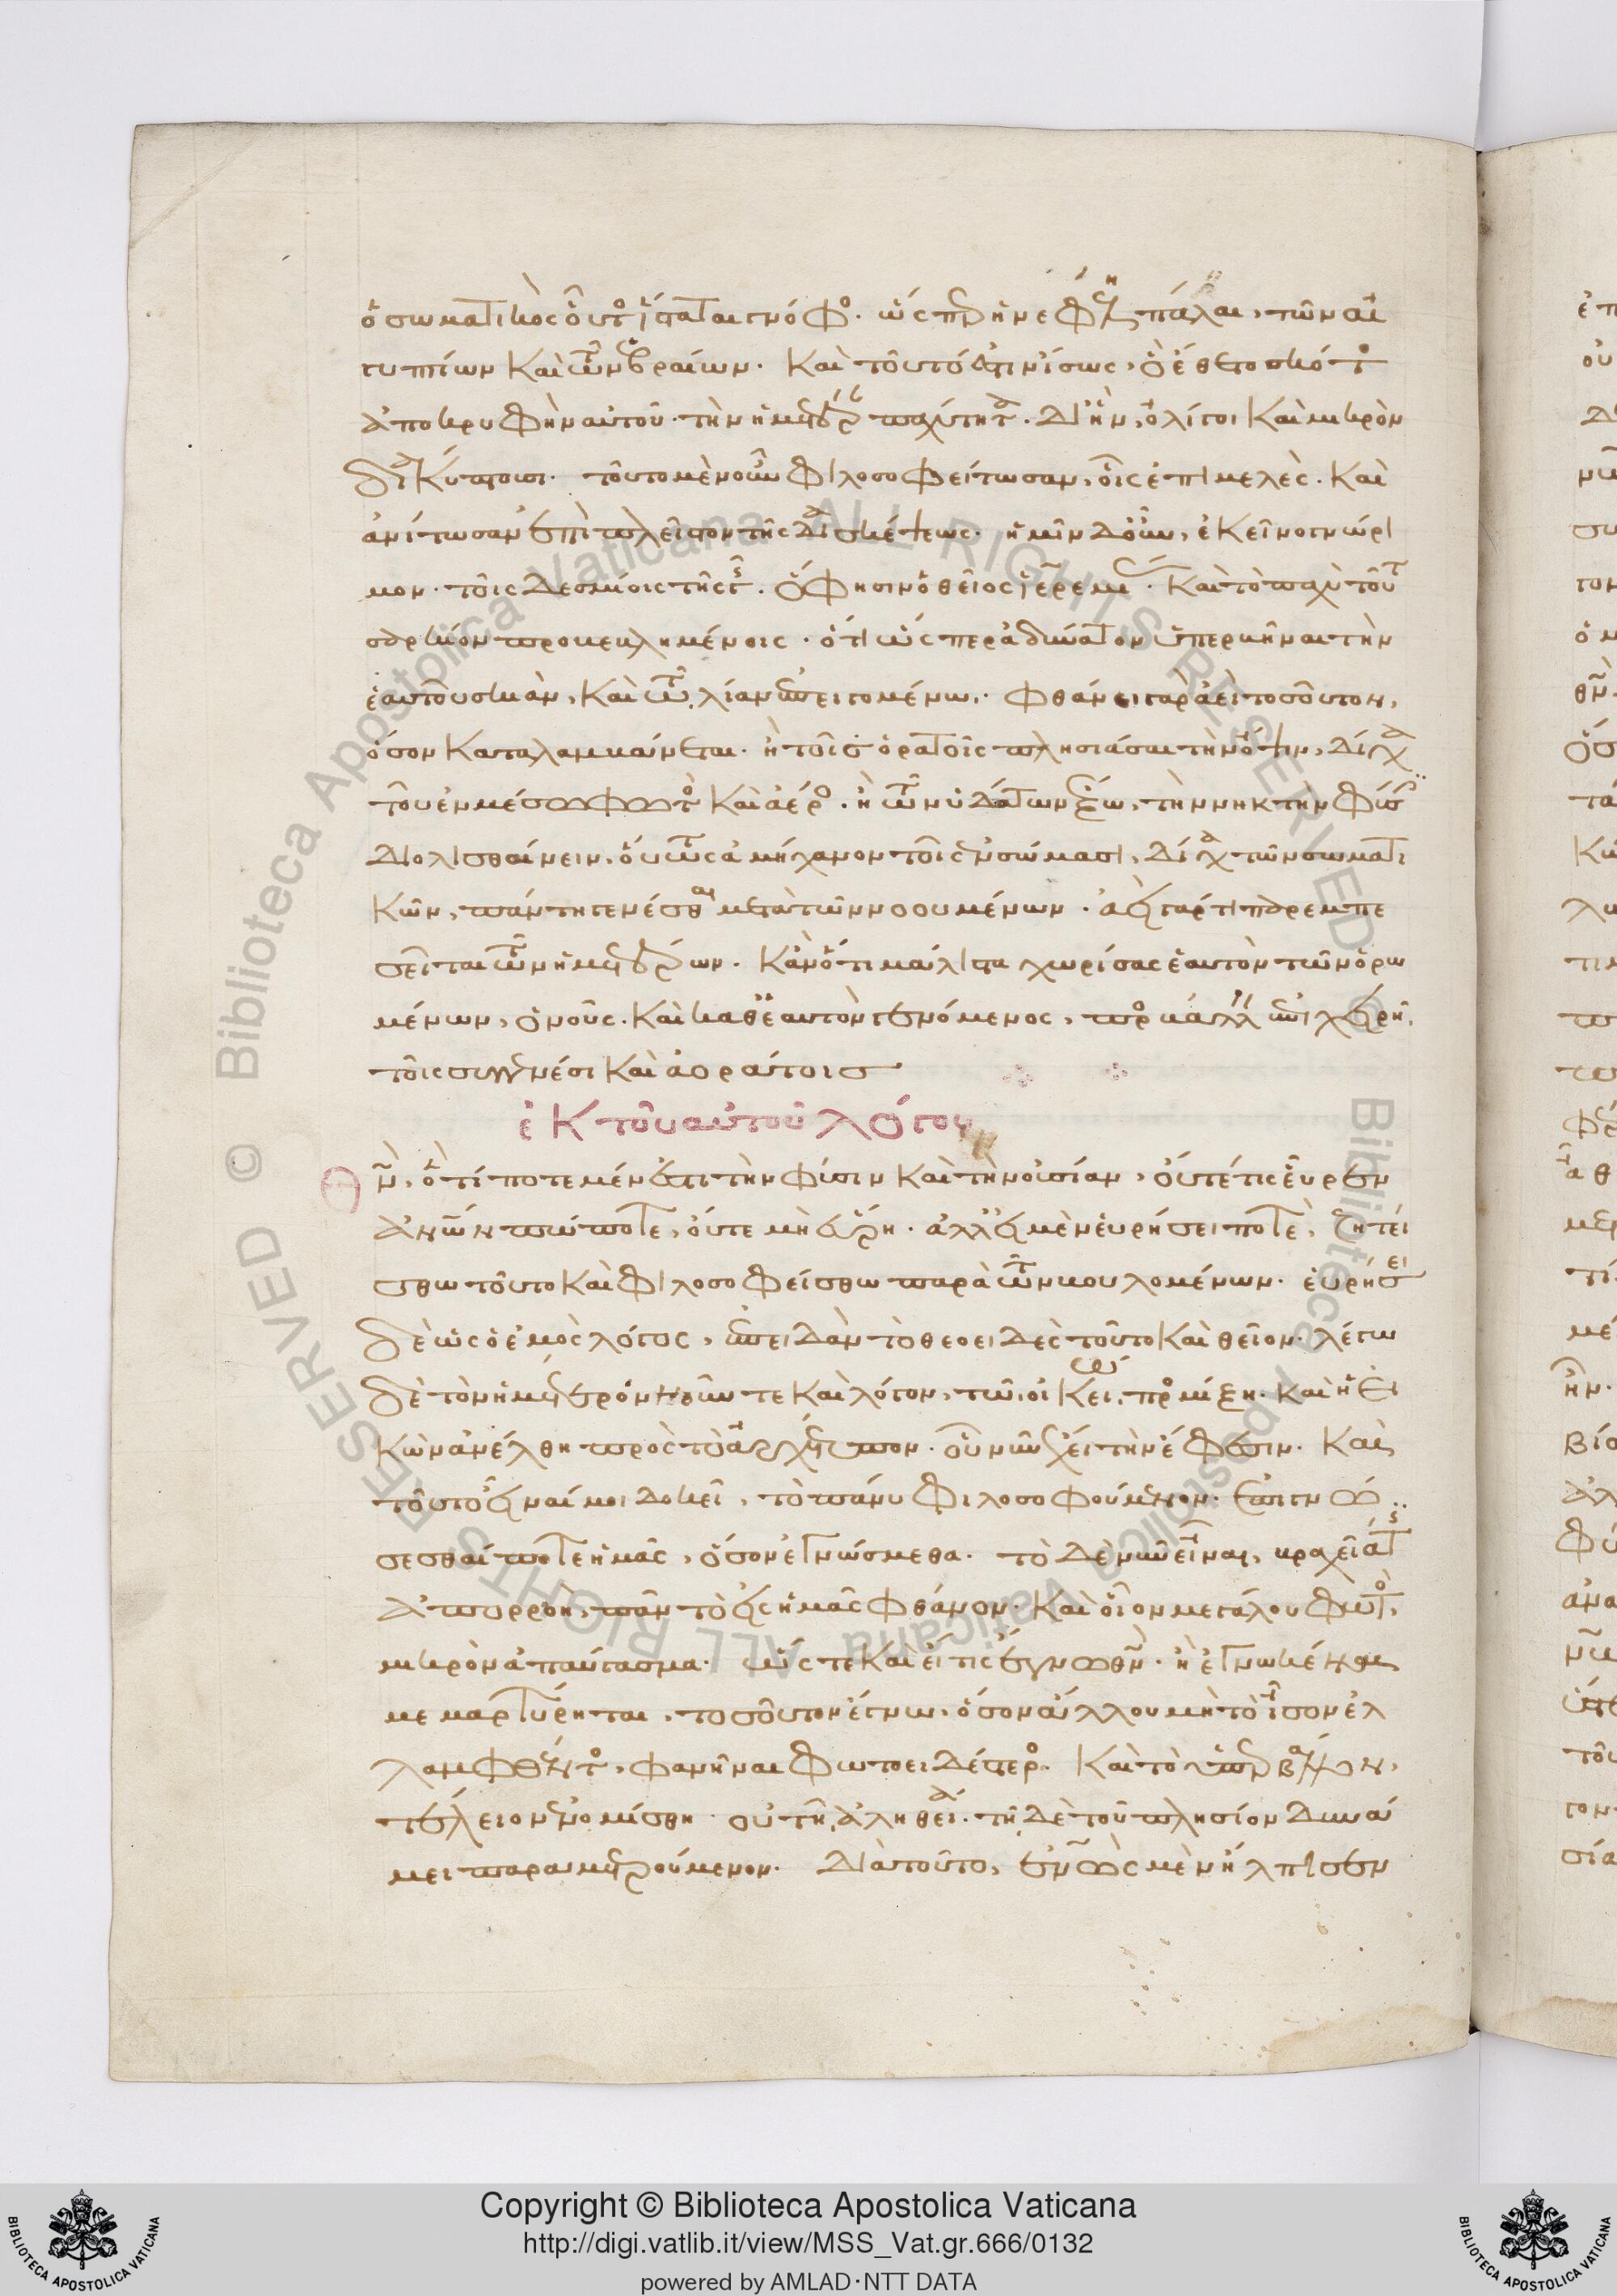 ὁ σωματικὸς οὗτος ἵσταται γνόφος. ὥσπερ ἡ νεφέλη πάλαι, τῶν αἰ
γυπτίων καὶ τῶν ἑβραίων. καὶ τοῦτό ἐστιν ἴσως, ὃ ἔθετο σκότος
ἀποκρυφὴν αὐτοῦ. τὴν ἡμετέραν παχύτητα. δι' ἣν, ὀλίγοι καὶ μικρὸν
διακύπτουσι. τοῦτο μὲν οὖν φιλοσοφείτωσαν, οἷς ἐπιμελὲς. καὶ
ἀνίτωσαν ἐπὶ πλεῖστον τῆς διασκέψεως. ἡμῖν δ' οὖν, ἐκεῖνο γνώρι
μον. τοῖς δεσμίοις τῆς γῆς. ὅ φησιν ὁ θεῖος ἱερεμίας. καὶ τὸ παχὺ τοῦτο
σαρκίον προβεβλημένοις. ὅτι ὥσπερ ἀδύνατον ὑπερβῆναι τὴν
ἑαυτοῦ σκιὰν, καὶ τῷ λίαν ἐπειγομένῳ. φθάνει γὰρ ἀεὶ τοσοῦτον,
ὅσον καταλαμβάνεται. ἢ τοῖς ὁρατοῖς πλησιάσαι τὴν ὄψιν, δίχα
τοῦ ἐν μέσῳ φωτὸς καὶ ἀέρος. ἢ τῶν ὑδάτων ἔξω, τὴν νηκτὴν φύσιν
διολισθαίνειν. οὕτως ἀμήχανον τοῖς ἐν σώμασι, δίχα τῶν σωματι
κῶν, πάντη γενέσθαι μετὰ τῶν νοουμένων. ἀεὶ γάρ τι παρεμπε
σεῖται τῶν ἡμετέρων. κἂν ὅτι μάλιστα χωρίσας ἑαυτὸν τῶν ὁρω
μένων, ὁ νοῦς. καὶ καθ' ἑαυτὸν γενόμενος, προσβάλλειν ἐπιχειρῇ
τοῖς συγγενέσι καὶ ἀοράτοις
ἐκ τοῦ αὐτοῦ λόγου
Θν, ὅ τί ποτε μέν ἐστι τὴν φύσιν καὶ τὴν οὐσίαν, οὔτέ τις εὗρεν
ἀνων πώποτε, οὔτε μὴ εὕρῃ. ἀλλ' εἰ μὲν εὑρήσει ποτὲ, ζητεί
σθω τοῦτο καὶ φιλοσοφείσθω παρὰ τῶν βουλομένων. εὑρήσει
δὲ ὡς ὁ ἐμὸς λόγος, ἐπειδὰν τὸ θεοειδὲς τοῦτο καὶ θεῖον. λέγω
δὲ τὸν ἡμέτερον νοῦν τε καὶ λόγον, τῷ οἰκείῳ προσμίξῃ. καὶ ἡ εἰ
κὼν ἀνέλθῃ πρὸς τὸ ἀρχέτυπον. οὗ νῦν ἔχει τὴν ἔφεσιν. καὶ
τοῦτο εἶναί μοι δοκεῖ, τὸ πάνυ φιλοσοφούμενον. ἐπιγνώ
σεσθαί ποτε ἡμᾶς, ὅσον ἐγνώσμεθα. τὸ δὲ νῦν εἶναι, βραχεῖά τις
ἀπορροὴ, πᾶν τὸ εἰς ἡμᾶς φθάνον. καὶ οἷον μεγάλου φωτὸς,
μικρὸν ἀπαύγασμα. ὥστε καὶ εἴ τις ἔγνω θν. ἢ ἐγνωκέναι
μεμαρτύρηται, τοσοῦτον ἔγνω, ὅσον ἄλλου μὴ τὸ ἶσον ἐλ
λαμφθέντος, φανῆναι φωτοειδέστερος. καὶ τὸ ὑπερβάλλον,
τέλειον ἐνομίσθη. οὐ τῇ ἀληθείᾳ. τῇ δὲ τοῦ πλησίον δυνά
μει παραμετρούμενον. διὰ τοῦτο, ἐνὼς μὲν ἤλπισεν
Copyright © Biblioteca Apostolica Vaticana
http://digi.vatlib.it/view/MSS_Vat.gr.666/0132
powered by AMLAD·NTT DATA